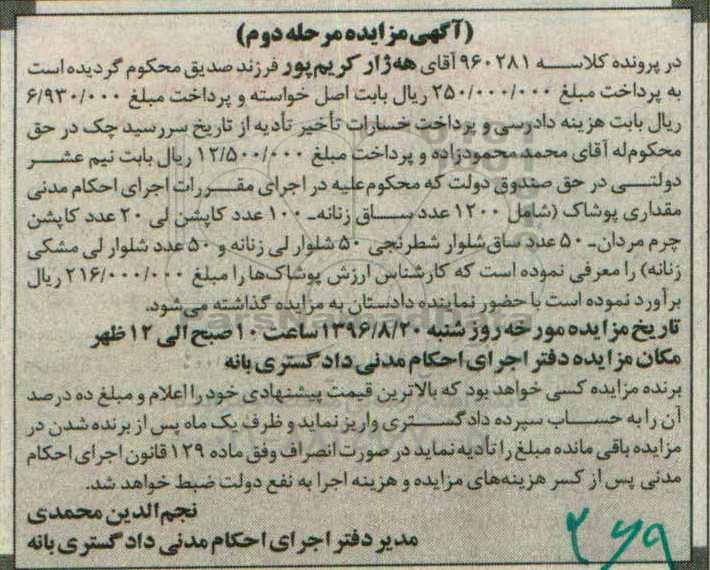 (آگهی مزایده مرحله دوم)
در پرونده کلاسه ۹۶۰۲۸۱ آقای هه‌ژار کریم‌پور فرزند صدیق محکوم گردیده است
به پرداخت مبلغ ۲۵۰/۰۰۰/۰۰۰ ریال بابت اصل خواسته و پرداخت مبلغ ۶/۹۳۰/۰۰۰
ریال بابت هزینه دادرسی و پرداخت خسارات تأخیر تأدیه از تاریخ سررسید چک در حق
محکوم‌له آقای محمد محمودزاده و پرداخت مبلغ ۱۲/۵۰۰/۰۰۰ ریال بابت نیم عشر
دولتی در حق صندوق دولت که محکوم‌علیه در اجرای مقررات اجرای احکام مدنی
مقداری پوشاک (شامل ۱۲۰۰ عدد ساق زنانه- ۱۰۰ عدد کاپشن لی ۲۰ عدد کاپشن
چرم مردان- ۵۰ عدد ساق‌شلوار شطرنجی ۵۰ شلوار لی زنانه و ۵۰ عدد شلوار لی مشکی
زنانه) را معرفی نموده است که کارشناس ارزش پوشاک‌ها را مبلغ ۲۱۶/۰۰۰/۰۰۰ ریال
برآورد نموده است با حضور نماینده دادستان به مزایده گذاشته می‌شود.
تاریخ مزایده مورخه روز شنبه ۱۳۹۶/۸/۲۰ ساعت ۱۰ صبح الی ۱۲ ظهر
مکان مزایده دفتر اجرای احکام مدنی دادگستری بانه
برنده مزایده کسی خواهد بود که بالاترین قیمت پیشنهادی خود را اعلام و مبلغ ده درصد
آن را به حساب سپرده دادگستری واریز نماید و ظرف یک ماه پس از برنده شدن در
مزایده باقی مانده مبلغ را تأدیه نماید در صورت انصراف وفق ماده ۱۲۹ قانون اجرای احکام
مدنی پس از کسر هزینه‌های مزایده و هزینه اجرا به نفع دولت ضبط خواهد شد.
نجم‌الدین محمدی
مدیر دفتر اجرای احکام مدنی دادگستری بانه